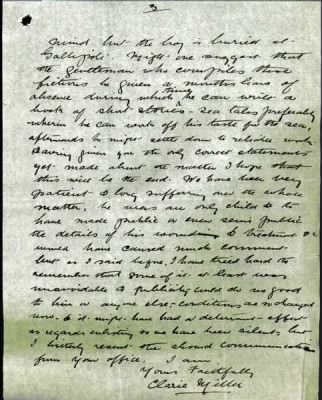 3
mind but the boy is buried at
Gallipoli. Might one suggest that
the gentleman who compiles these
fictions be given a minutes leave of
absence during which time he can write a
book of short stories or sea tales preferably
wherein he can work off his taste for the sea,
afterwards he might settle down to reliable work.
Having given you the only correct statements
yet made about the matter I hope that
this will be the end. We have been very
patient & long suffering over the whole
matter, he was our only child & to
have made public or even semi public
the details of his wounding & treatment &c
would have caused much comment
but as I said before, I have tried hard to
remember that some of it at least was
unavoidable & publicity could do no good
to him or anyone else, conditions are so changed
now. & it might have had a deterrent effect
as regards enlisting so we have been silent, but
I bitterly resent the absurd communications
from your office. I am
Yours Faithfully
Clarie Miller